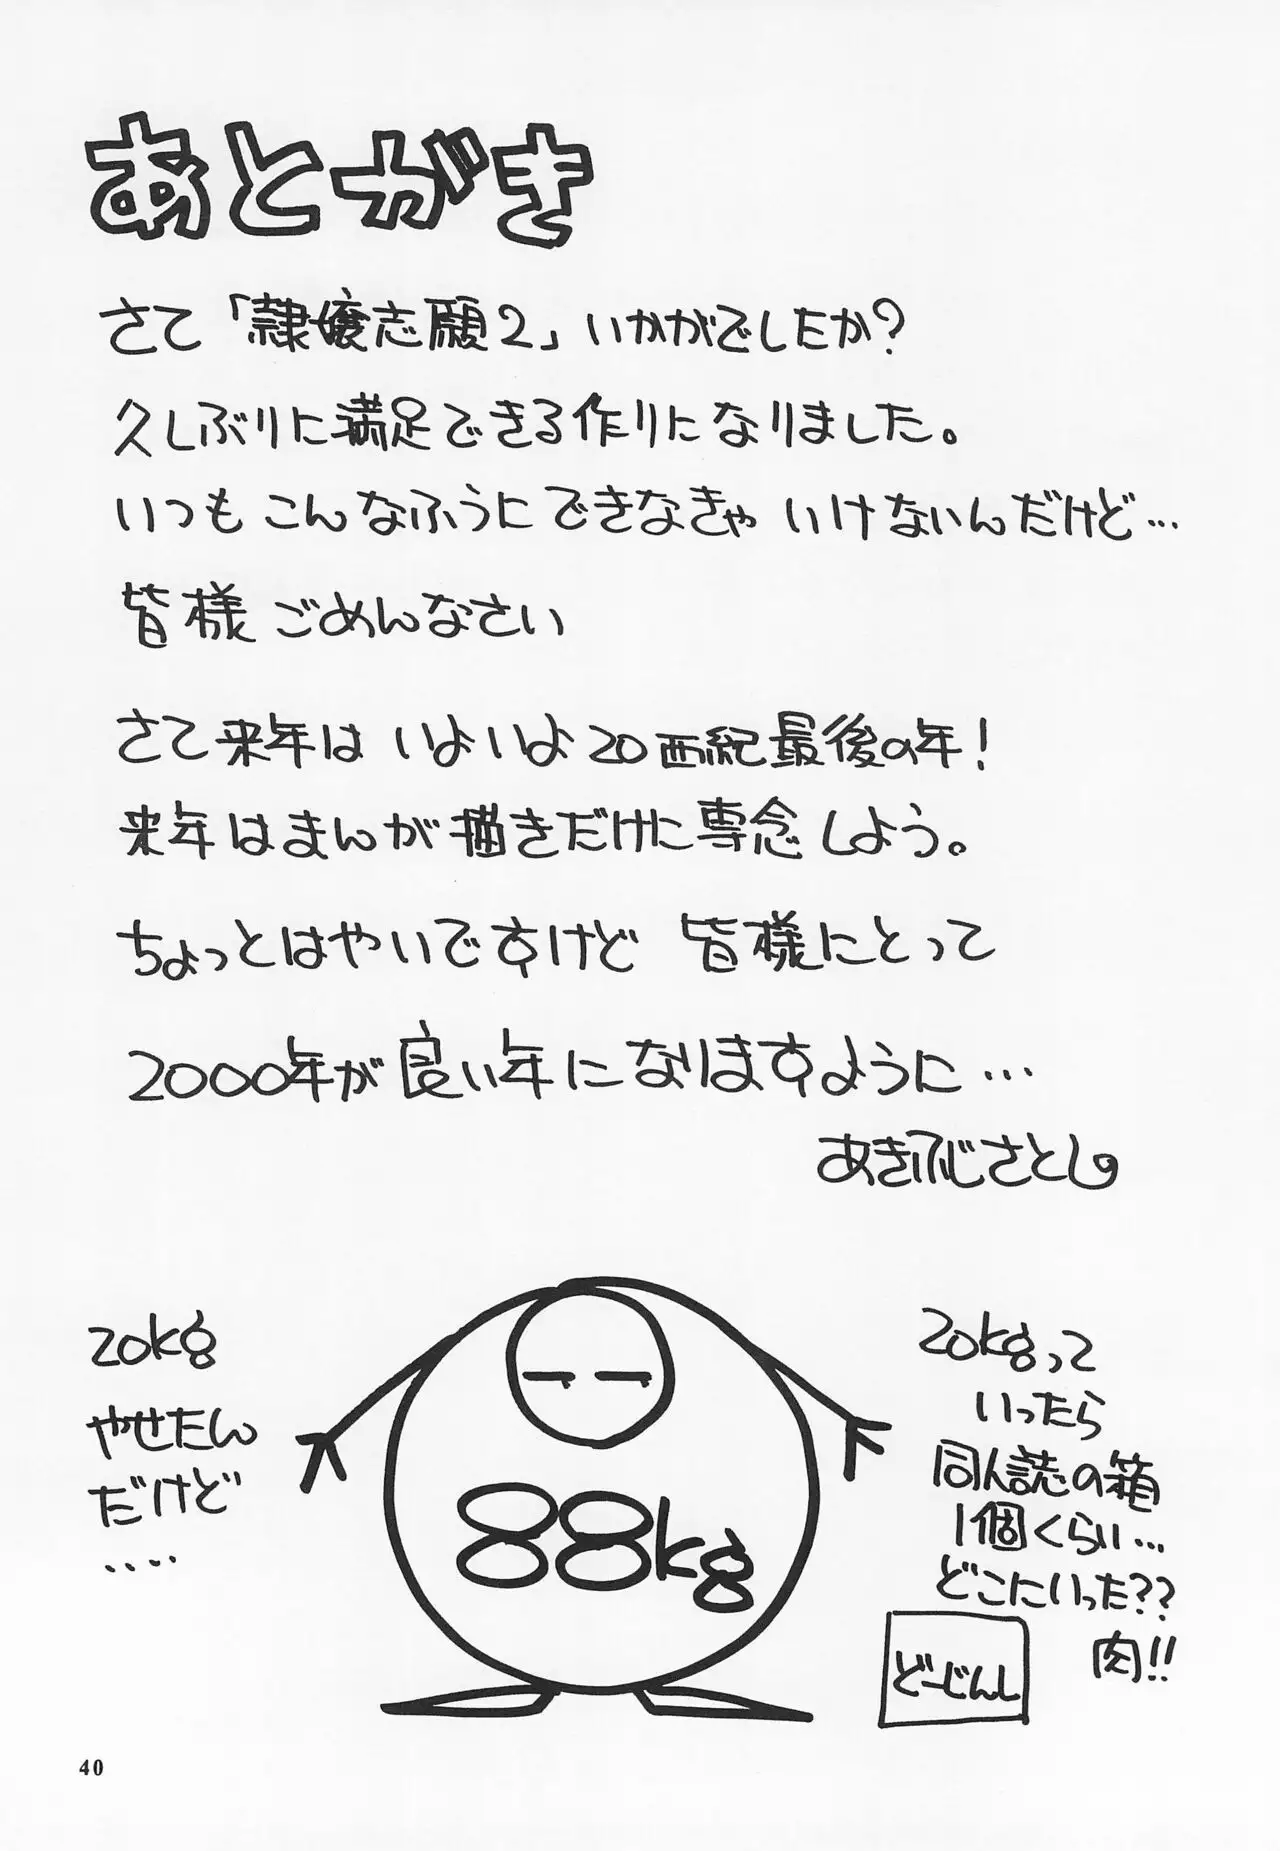 あとがき
さて「隷嬢志願2」いかがでしたか?
久しぶりに満足できる作りになりました。
いつも こんなふうにできなきゃ いけないんだけど…
皆様 ごめんなさい
さて来年は いよいよ20西紀最後の年!
来年はまんが描きだけに専念しよう。
ちょっとはやいですけど 皆様にとって
2000年が良い年になりますように…
あきふじさとしの
20kg
やせたん
だけど
‥‥
88kg
20kgって
いったら
同人誌の箱
1個くらい…
どこにいった??
肉!!
どーじんし
40